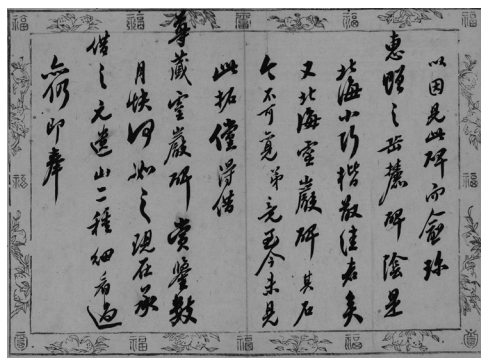 以因見此碑而龕珎
惠贈之岳麓碑陰是
北海小行楷最佳者矣
又北海靈巖碑其石
今不可覓弟竟至今未見
此拓儻得借
尊藏靈巖碑賞鑒數
月快何如之現在承
借之元遺山二種細看過
亦仍即奉